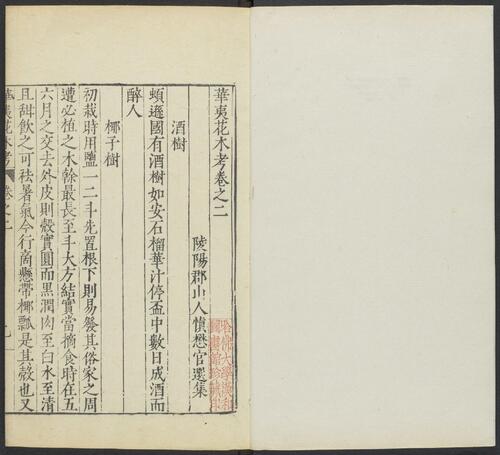 華夷花木考卷之二
陵陽郡山人慎懋官選集
酒樹
頓遜國有酒樹如安石榴華汁停盃中數日成酒而
醉人
椰子樹
初栽時用鹽一二斗先置根下則易發其俗家之周
遭必植之木榦最長至斗大方結實當摘食時在五
六月之交去外皮則殼實圓而黑潤肉至白水至清
且甜飲之可祛暑氣今行商懸帶椰瓢是其殼也又
華夷花木考 卷之二